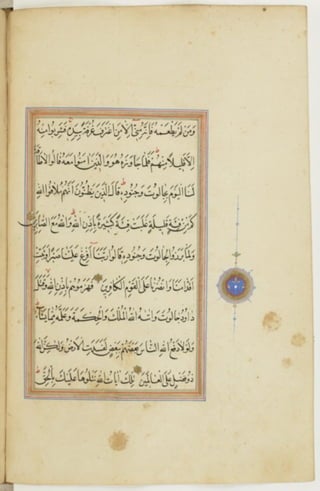 وَمَنْ لَمْ يَطْعَمْهُ فَإِنَّهُ مِنِّي إِلَّا مَنِ اغْتَرَفَ غُرْفَةً بِيَدِهِ فَشَرِبُوا مِنْهُ
إِلَّا قَلِيلًا مِنْهُمْ فَلَمَّا جَاوَزَهُ هُوَ وَالَّذِينَ آمَنُوا مَعَهُ قَالُوا لَا طَاقَةَ
لَنَا الْيَوْمَ بِجَالُوتَ وَجُنُودِهِ قَالَ الَّذِينَ يَظُنُّونَ أَنَّهُمْ مُلَاقُوا اللهِ
كَمْ مِنْ فِئَةٍ قَلِيلَةٍ غَلَبَتْ فِئَةً كَثِيرَةً بِإِذْنِ اللهِ وَاللهُ مَعَ الصَّابِرِينَ
وَلَمَّا بَرَزُوا لِجَالُوتَ وَجُنُودِهِ قَالُوا رَبَّنَا أَفْرِغْ عَلَيْنَا صَبْرًا وَثَبِّتْ
أَقْدَامَنَا وَانْصُرْنَا عَلَى الْقَوْمِ الْكَافِرِينَ فَهَزَمُوهُمْ بِإِذْنِ اللهِ وَقَتَلَ
دَاوُدُ جَالُوتَ وَآتَاهُ اللهُ الْمُلْكَ وَالْحِكْمَةَ وَعَلَّمَهُ مِمَّا يَشَاءُ
وَلَوْلَا دَفْعُ اللهِ النَّاسَ بَعْضَهُمْ بِبَعْضٍ لَفَسَدَتِ الْأَرْضُ وَلَكِنَّ اللهَ
ذُو فَضْلٍ عَلَى الْعَالَمِينَ تِلْكَ آيَاتُ اللهِ نَتْلُوهَا عَلَيْكَ بِالْحَقِّ